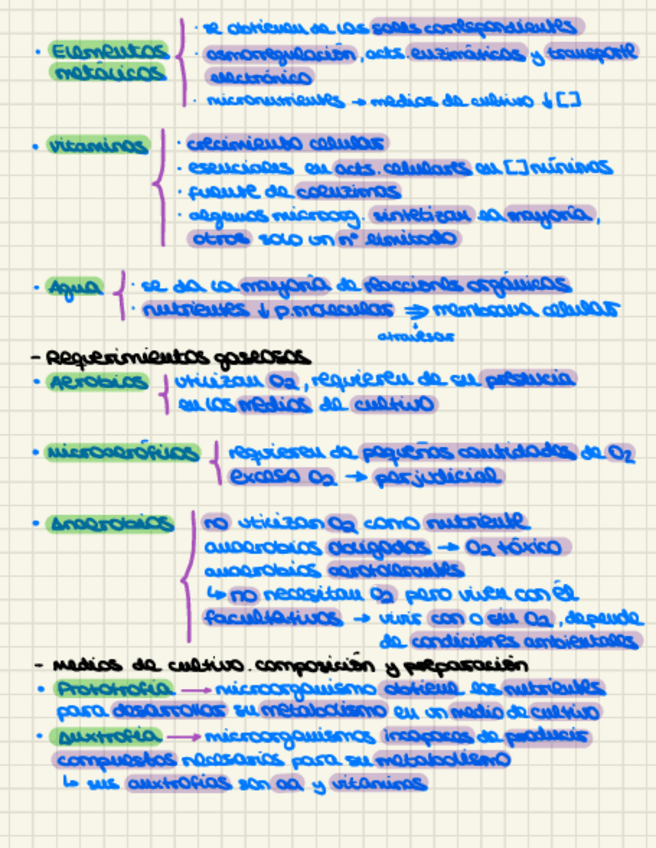 · se obtienen de las sales correspondientes
• Elementos metálicos
· osmorregulación, acts. enzimáticas y transporte
electrónico
· micronutrientes → medios de cultivo ↓ []
• vitaminas
· crecimiento celular
· esenciales en acts. celulares en [] mínimas
· fuente de coenzimas
· algunos microorg. sintetizan la mayoría,
otros solo un nº limitado
• Agua
· se da la mayoría de reacciones orgánicas
· nutrientes ↓ p.molecular ⇒ membrana celular
atraviesan
- Requerimientos gaseosos
• Aerobios
utilizan O2, requieren de su presencia
en los medios de cultivo
• microaerófilos
requieren de pequeñas cantidades de O2
exceso O2 → perjudicial
• Anaerobios
no utilizan O2 como nutriente
anaerobios obligados → O2 tóxico
anaerobios aerotolerantes
↳ no necesitan O2 pero viven con él
facultativos → vivir con o sin O2, depende
de condiciones ambientales
- medios de cultivo. composición y preparación
• Prototrofia → microorganismo obtiene los nutrientes
para desarrollar su metabolismo en un medio de cultivo
• Auxtrofia → microorganismos incapaces de producir
compuestos necesarios para su metabolismo
↳ sus auxtrofias son aa y vitaminas